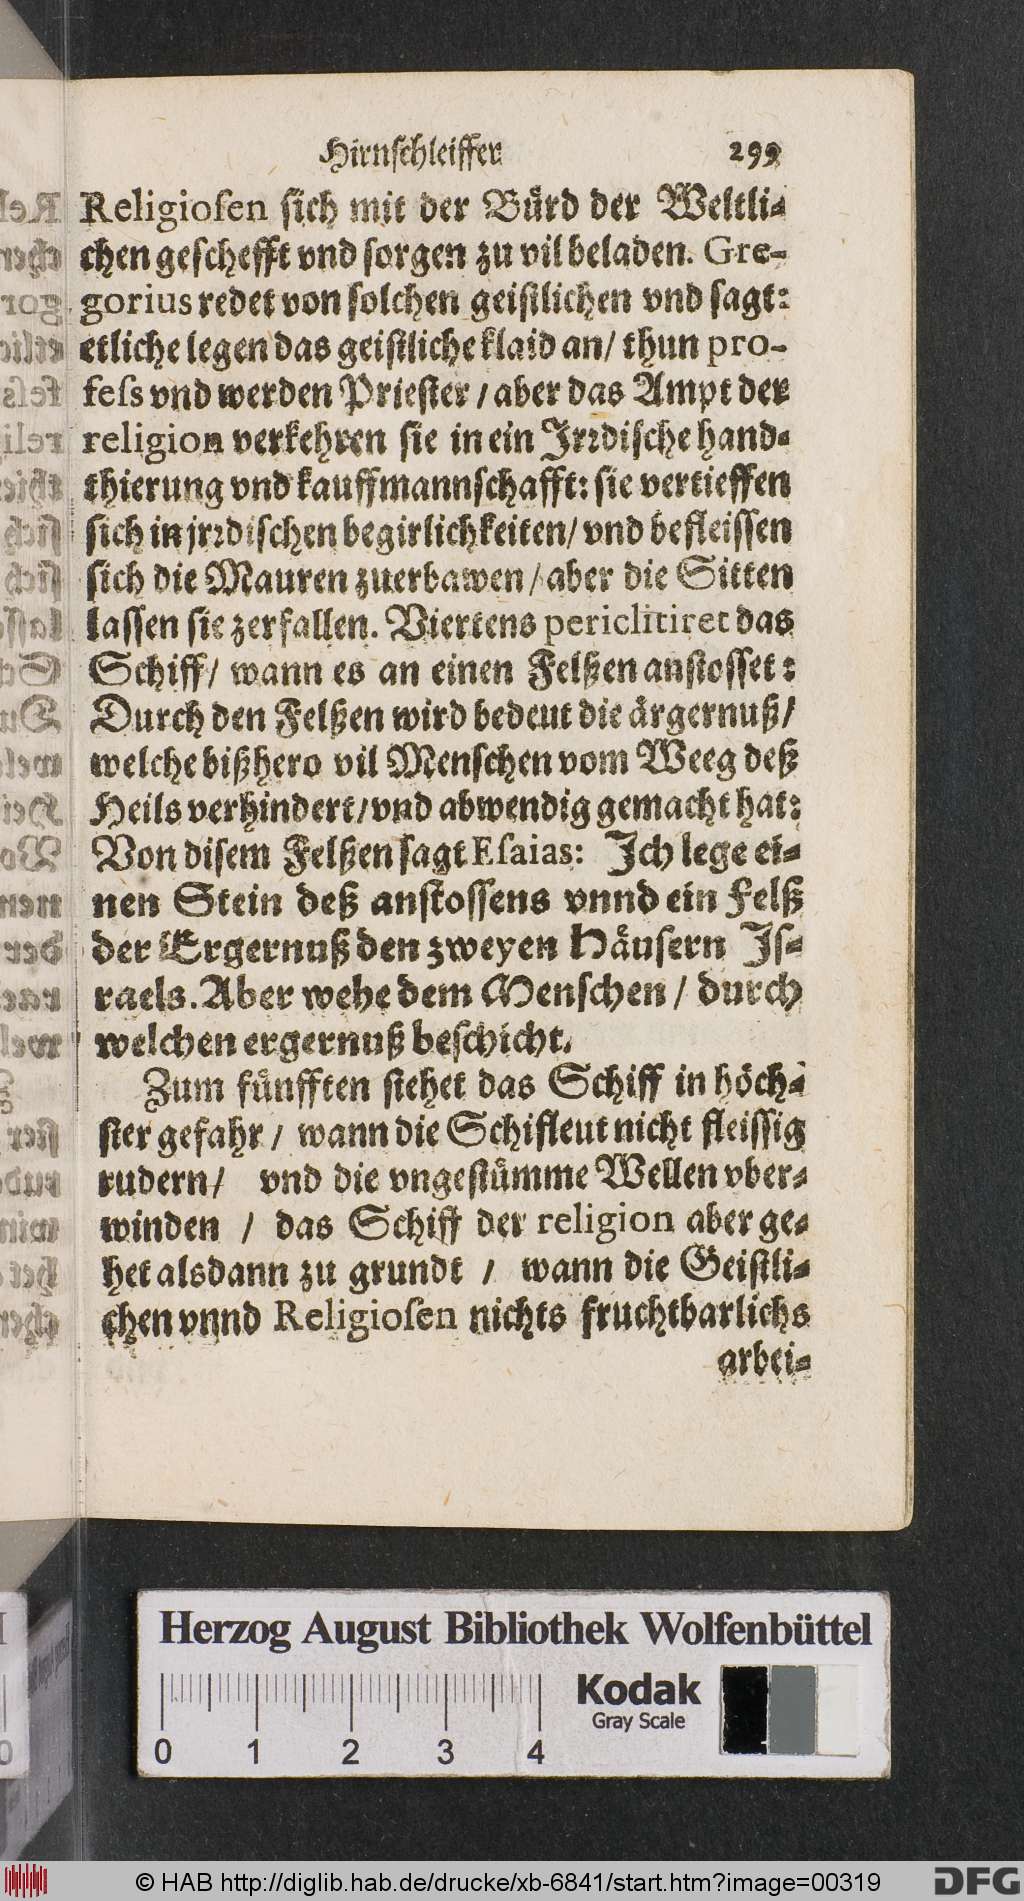 Hirnſchleiffer. 299
Religioſen ſich mit der Bůrd der Weltli-
chen geſchefft vnd ſorgen zu vil beladen. Gre-
gorius redet von ſolchen geiſtlichen vnd ſagt:
etliche legen das geiſtliche klaid an/ thun pro-
feſs vnd werden Prieſter / aber das Ampt der
religion verkehren ſie in ein Jrꝛdiſche hand-
thierung vnd kauffmannſchafft: ſie vertieffen
ſich in jrꝛdiſchen begirlichkeiten/ vnd befleiſſen
ſich die Mauren zuerbawen / aber die Sitten
laſſen ſie zerfallen. Viertens periclitiret das
Schiff/ wann es an einen Felßen anſtoſſet:
Durch den Felßen wird bedeut die årgernuß/
welche bißhero vil Menſchen vom Weeg deß
Heils verhindert/ vnd abwendig gemacht hat:
Von diſem Felßen ſagt Eſaias: Jch lege ei-
nen Stein deß anſtoſſens vnnd ein Felß
der Ergernuß den zweyen Häuſern Jſ-
raels. Aber wehe dem Menſchen / durch
welchen ergernuß beſchicht.
Zum fůnfften ſtehet das Schiff in höch-
ſter gefahr / wann die Schifleut nicht fleiſſig
rudern/ vnd die vngeſtůmme Wellen vber-
winden / das Schiff der religion aber ge-
het alsdann zu grundt / wann die Geiſtli-
chen vnnd Religioſen nichts fruchtbarlichs
arbei-
Herzog August Bibliothek Wolfenbüttel
Kodak
Gray Scale
0 1 2 3 4
© HAB http://diglib.hab.de/drucke/xb-6841/start.htm?image=00319
DFG